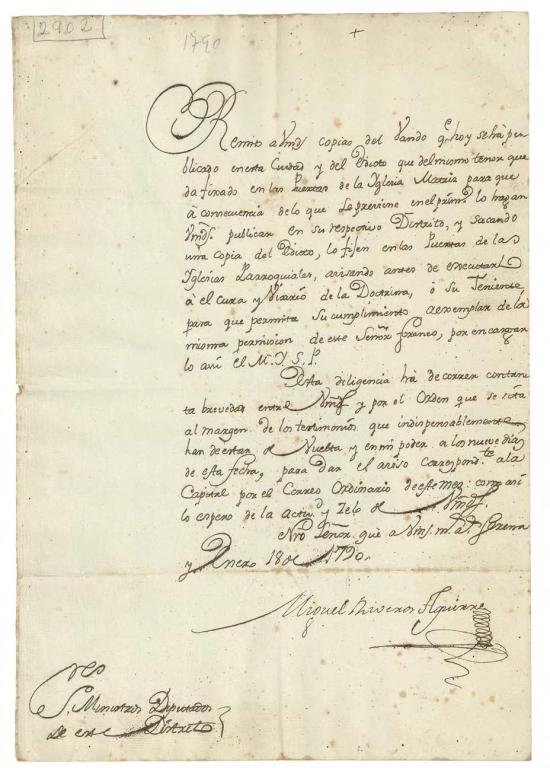 2902
1790
+
Remito a Vmds copias del Vando q.e hoy se há pu
blicado en esta Ciudad y del Edicto que del mismo tenor que
da fixado en las Puertas de la Yglesia Matriz para que
à consecuencia de lo que se previene en el prim.o lo hagan
Vmds. publicar en su respectivo Distrito, y sacando
una copia del Edicto, lo fijen en las Puertas de las
Yglesias Parroquiales, avisando antes de executarl
à el Cura y Vicario de la Doctrina, ò su Teniente,
para que permita su cumplimiento à exemplar de la
misma permision de este Señor Foraneo, por encargar
lo assi el M. Y. S. P.
Esta diligencia há de correr con tan
ta brevedad entre Vmds y por el Orden que se nota
al margen de los testimonios que indispensablemente
han de estar de Vuelta y en mi poder a los nueve dias
de esta fecha, para dar el aviso correspond.te a la
Capital por el Correo Ordinario de este mes: como asi
lo espero de la Activ.d y Zelo de Vmds.
Nro Señor gue a Vms. m.s a.s Serena
y Enero 18 de 1790.
Miguel Riveros Aguirre
S.res
S. Ministros Diputados
de este Distrito